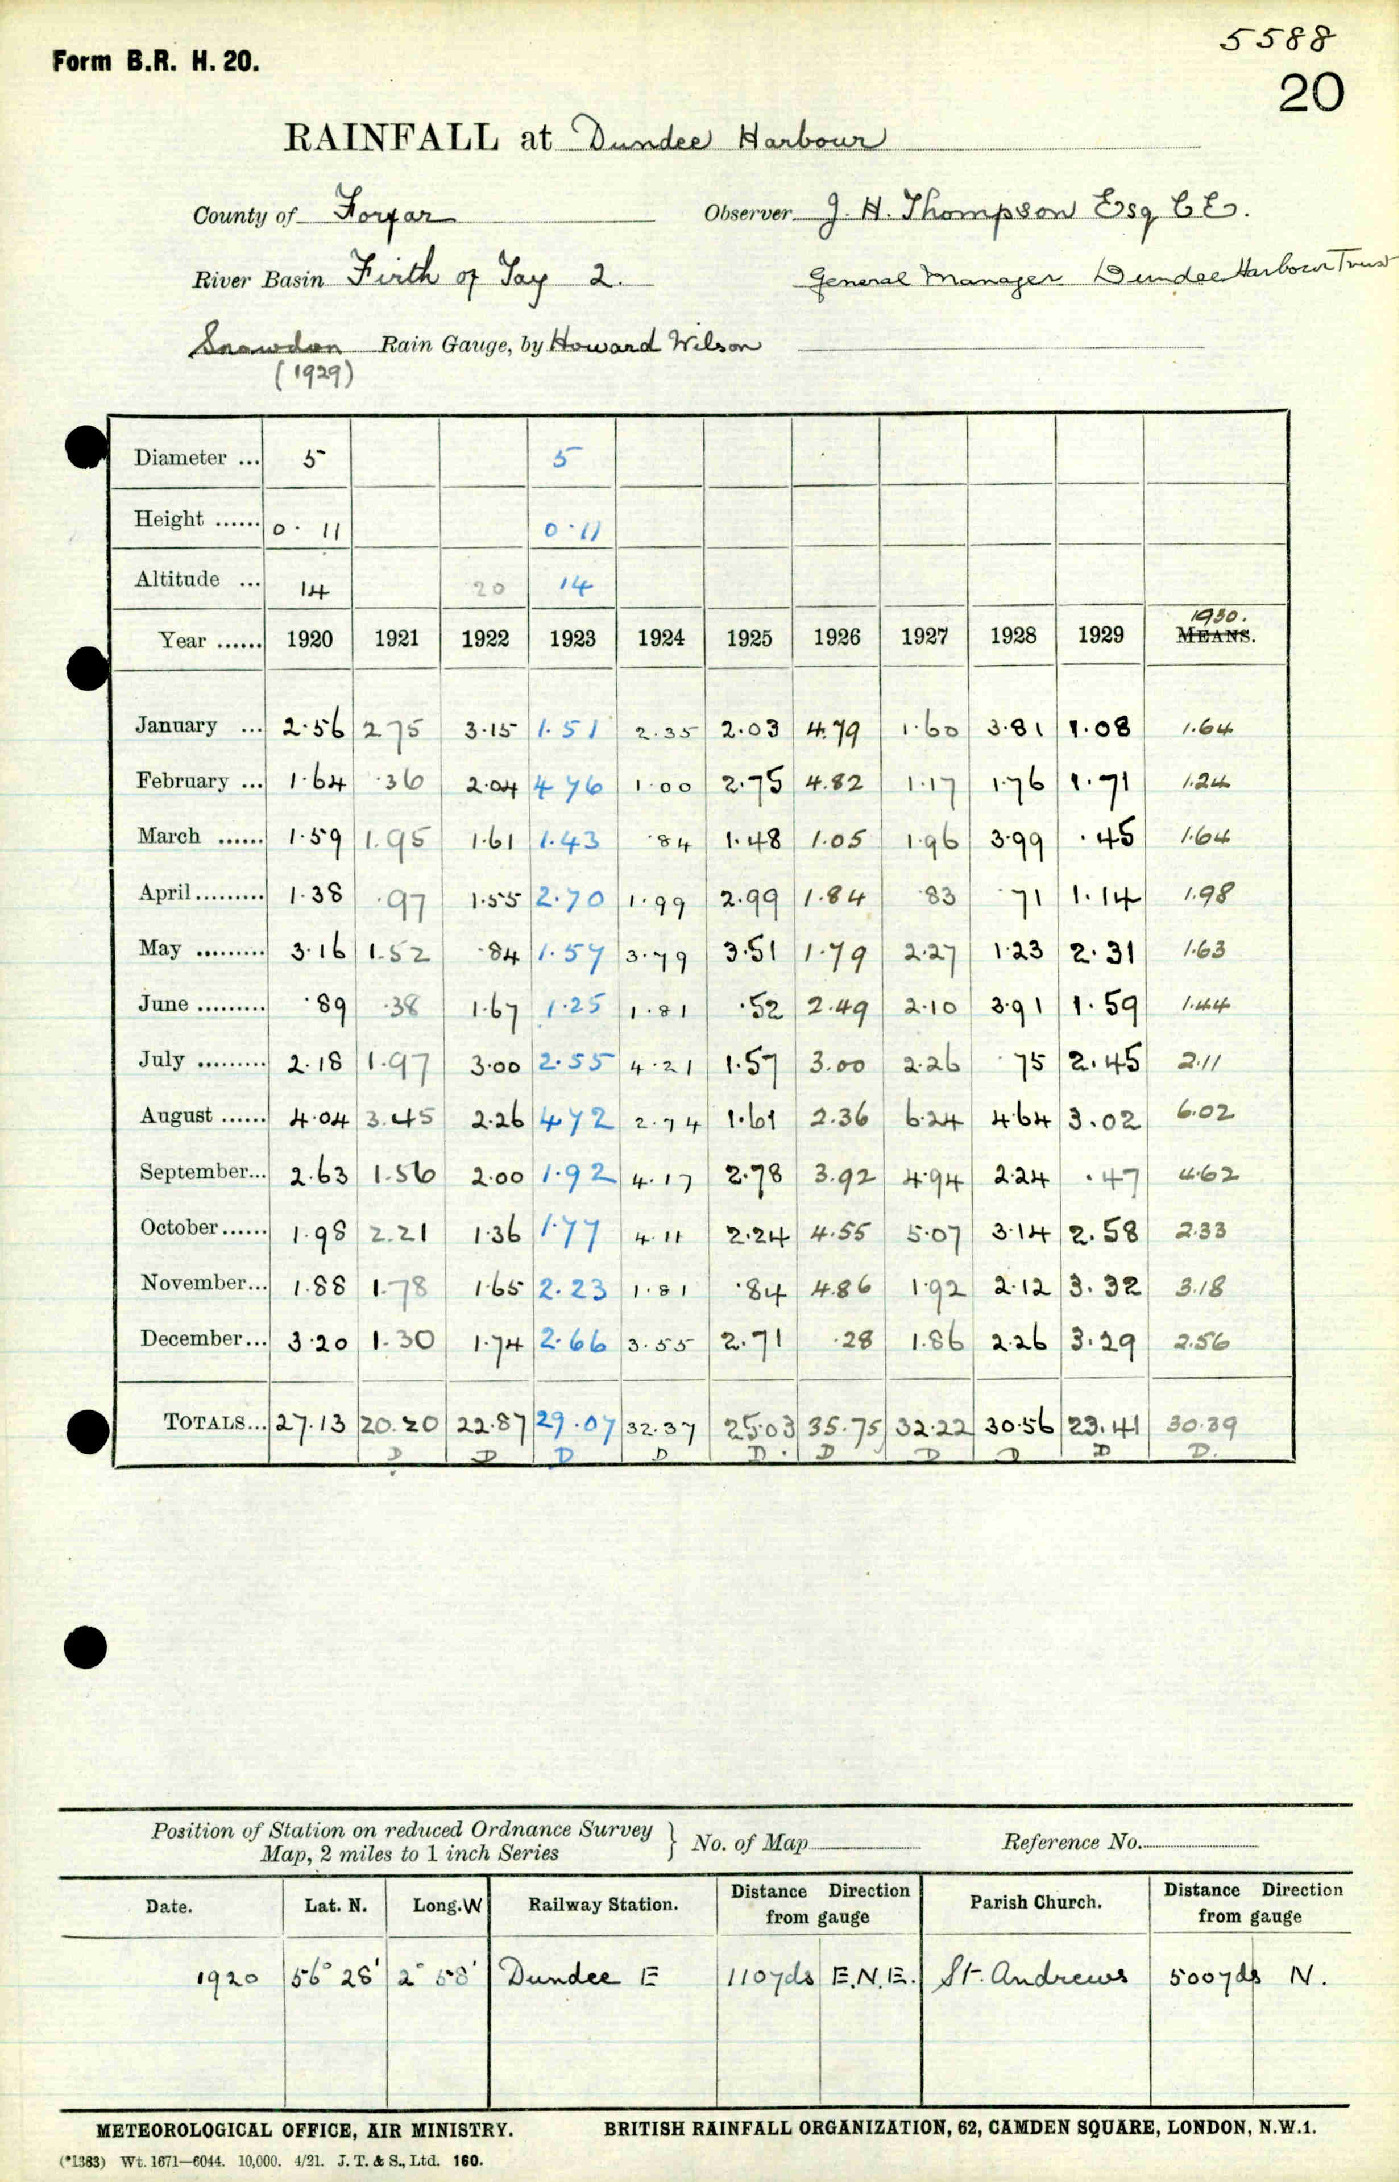 5588
Form B.R. H. 20.
20
RAINFALL at Dundee Harbour
County of Forfar Observer J. H. Thompson Esq C E.
River Basin Firth of Tay 2. General Manager Dundee Harbour Trust
Snowdon Rain Gauge, by Howard Wilson
(1929)
Diameter ... 5 5
Height ...... 0. 11 0.11
Altitude ... 14 20 14
1930.
Year ...... 1920 1921 1922 1923 1924 1925 1926 1927 1928 1929 MEANS.
January ... 2.56 2 75 3.15 1.51 2.35 2.03 4.79 1.60 3.81 1.08 1.64
February ... 1.64 .36 2.04 4 76 1.00 2.75 4.82 1.17 1.76 1.71 1.24
March ...... 1.59 1.95 1.61 1.43 .84 1.48 1.05 1.96 3.99 .45 1.64
April ......... 1.38 .97 1.55 2.70 1.99 2.99 1.84 .83 .71 1.14 1.98
May ......... 3.16 1.52 .84 1.57 3.79 3.51 1.79 2.27 1.23 2.31 1.63
June ......... .89 .38 1.67 1.25 1.81 .52 2.49 2.10 3.91 1.59 1.44
July ......... 2.18 1.97 3.00 2.55 4.21 1.57 3.00 2.26 .75 2.45 2.11
August ...... 4.04 3.45 2.26 4.72 2.74 1.61 2.36 6.24 4.64 3.02 6.02
September... 2.63 1.56 2.00 1.92 4.17 2.78 3.92 4.94 2.24 .47 4.62
October...... 1.98 2.21 1.36 1.77 4.11 2.24 4.55 5.07 3.14 2.58 2.33
November... 1.88 1.78 1.65 2.23 1.81 .84 4.86 1.92 2.12 3.32 3.18
December... 3.20 1.30 1.74 2.66 3.55 2.71 .28 1.86 2.26 3.29 2.56
TOTALS... 27.13 20.20 22.87 29.07 32.37 25.03 35.75 32.22 30.56 23.41 30.39
D D D D D. D D D D D.
Position of Station on reduced Ordnance Survey
Map, 2 miles to 1 inch Series } No. of Map Reference No.
Date. Lat. N. Long. W Railway Station. Distance Direction from gauge Parish Church. Distance Direction from gauge
1920 56° 28' 2° 58' Dundee E 110yds E.N.E. St. Andrews 500yds N.
METEOROLOGICAL OFFICE, AIR MINISTRY. BRITISH RAINFALL ORGANIZATION, 62, CAMDEN SQUARE, LONDON, N.W.1.
(*1383) Wt. 1671—6044. 10,000. 4/21. J. T. & S., Ltd. 160.